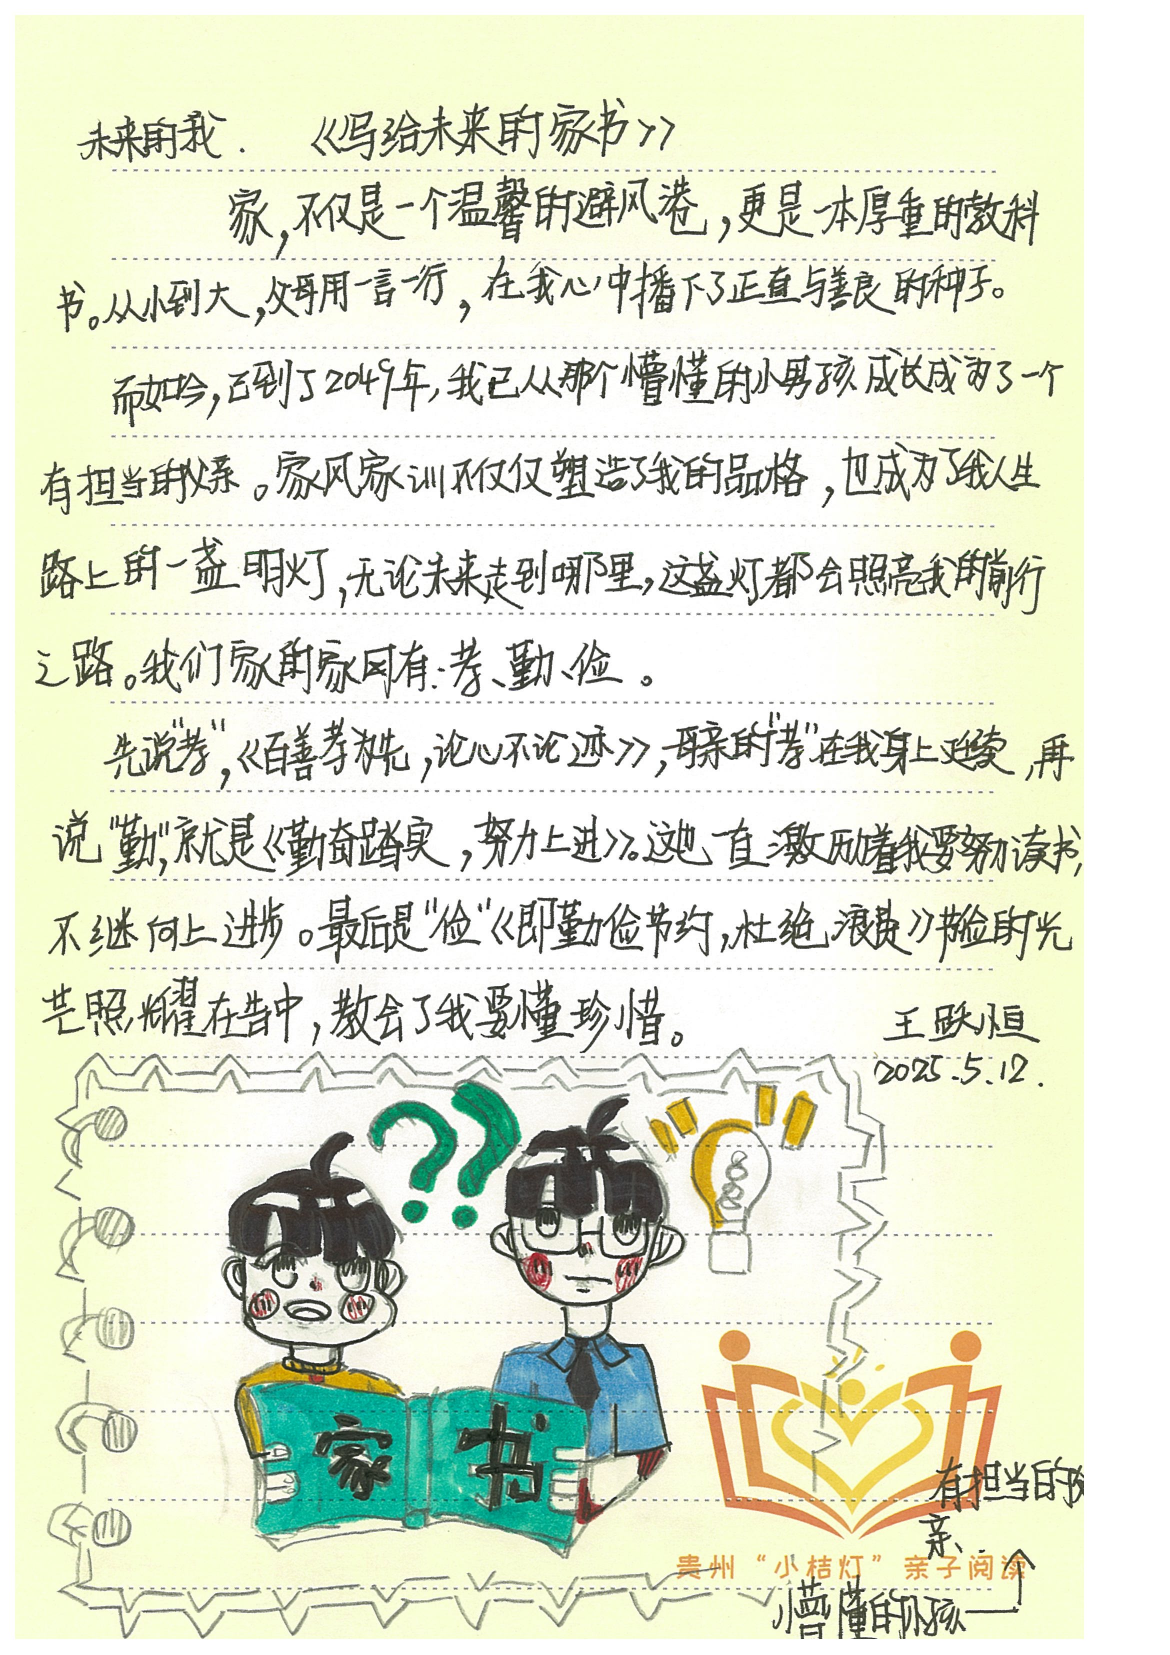 未来的我. 《写给未来的家书》
家，不仅是一个温馨的避风港，更是一本厚重的教科
书。从小到大，父母用一言一行，在我心中播下了正直与善良的种子。
而如今，已到了2049年，我已从那个懵懂的小男孩成长成为了一个
有担当的父亲。家风家训不仅仅塑造了我的品格，也成为了我人生
路上的一盏明灯，无论未来走到哪里，这盏灯都会照亮我的前行
之路。我们家的家风有：孝、勤、俭。
先说“孝”，《百善孝为先，论心不论迹》，母亲的“孝”在我身上延续，再
说“勤”，就是《勤奋踏实，努力上进》。这也一直激励着我要努力读书，
不继向上进步。最后是“俭”《即勤俭节约，杜绝浪费》节俭的光
芒照耀在告中，教会了我要懂珍惜。
王跃恒
2025.5.12.
??
家书
有担当的父
亲.
贵州“小桔灯”亲子阅读
懵懂的小孩